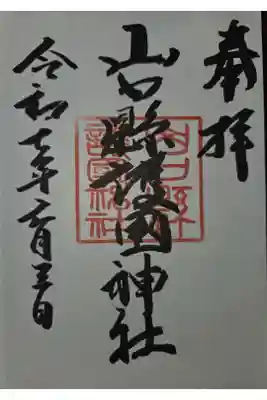 奉拝
山口縣護國神社
山口縣護國神社
令和七年一月三日